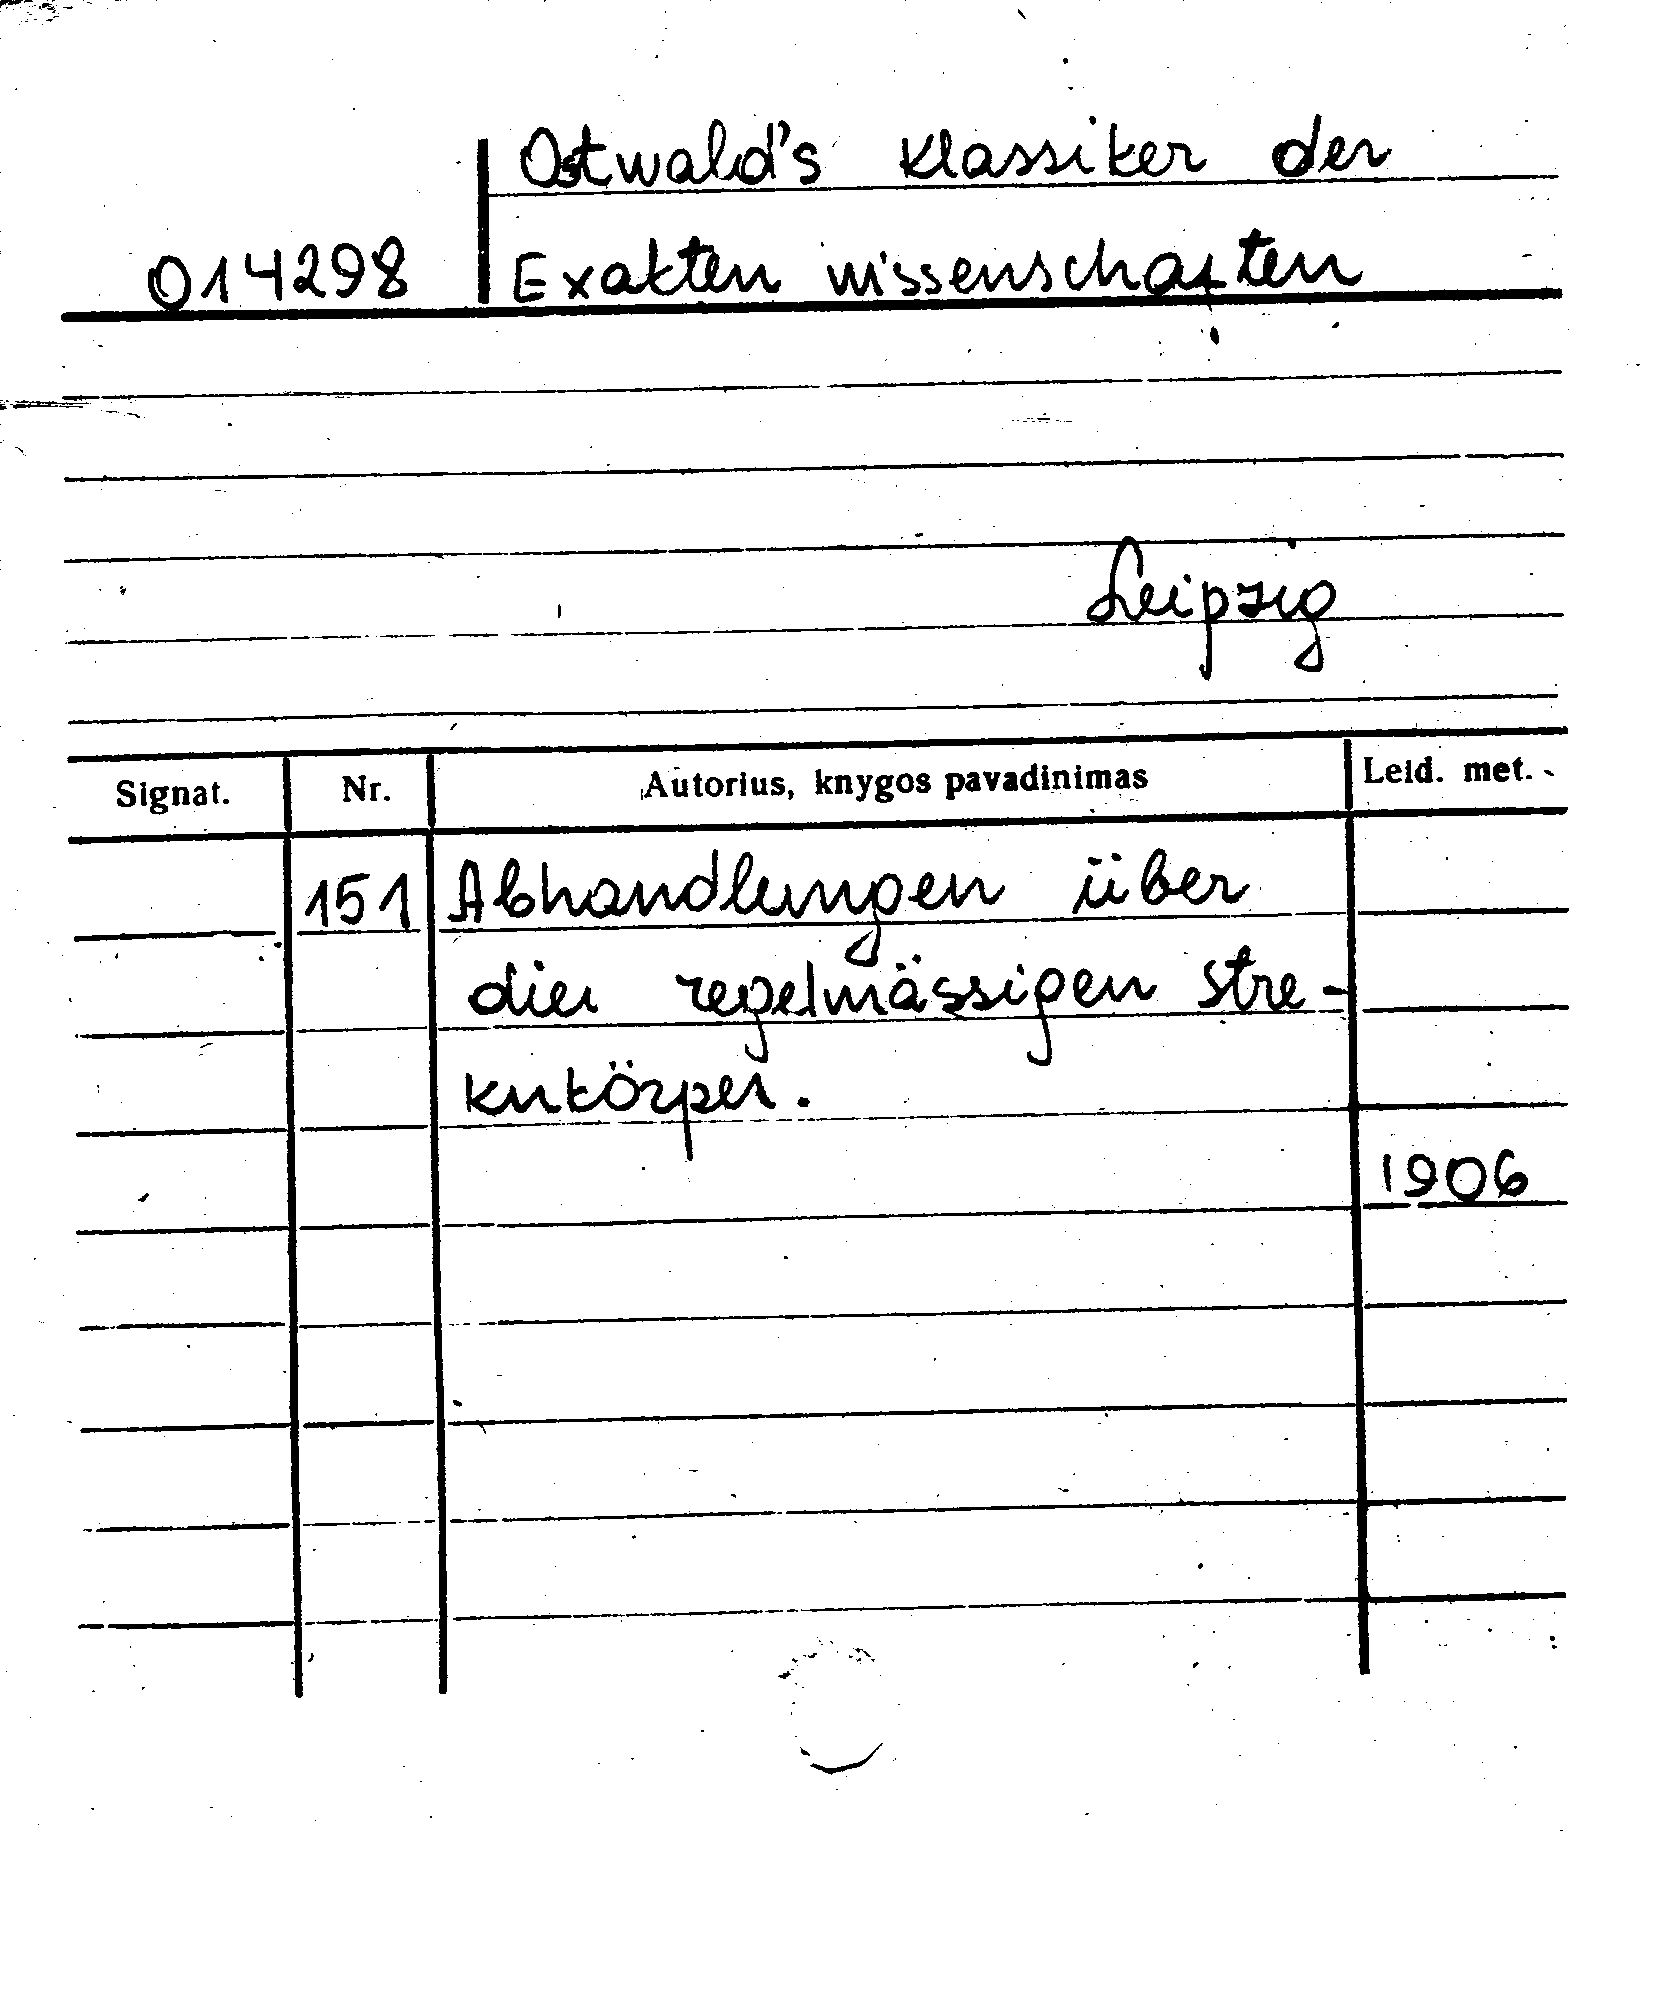 Ostwald's Klassiker der
014298 Exakten wissenschaften
Leipzig
Signat. Nr. Autorius, knygos pavadinimas Leid. met.
151 Abhandlungen über
die regelmässigen stre-
knkörper.
1906